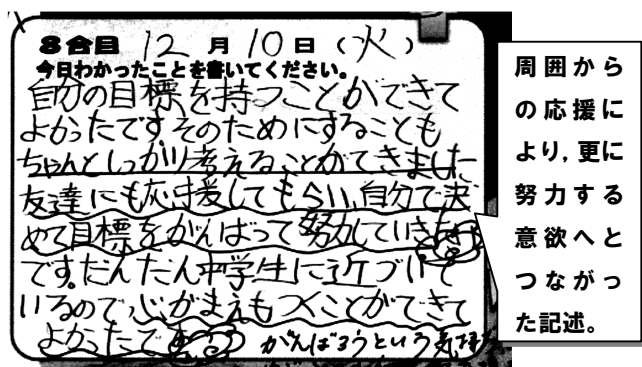 8合目 12月10日(火)
今日わかったことを書いてください。
自分の目標を持つことができて
よかったです。そのためにすることも
ちゃんとしっかり考えることができました
友達にも応援してもらい、自分で決
めて目標をがんばって努力していきたい
です。だんだん中学生に近づいて
いるので、心がまえもつくことができて
よかったです
がんばろうという気持
周囲から
の応援に
より，更に
努力する
意欲へと
つながっ
た記述。